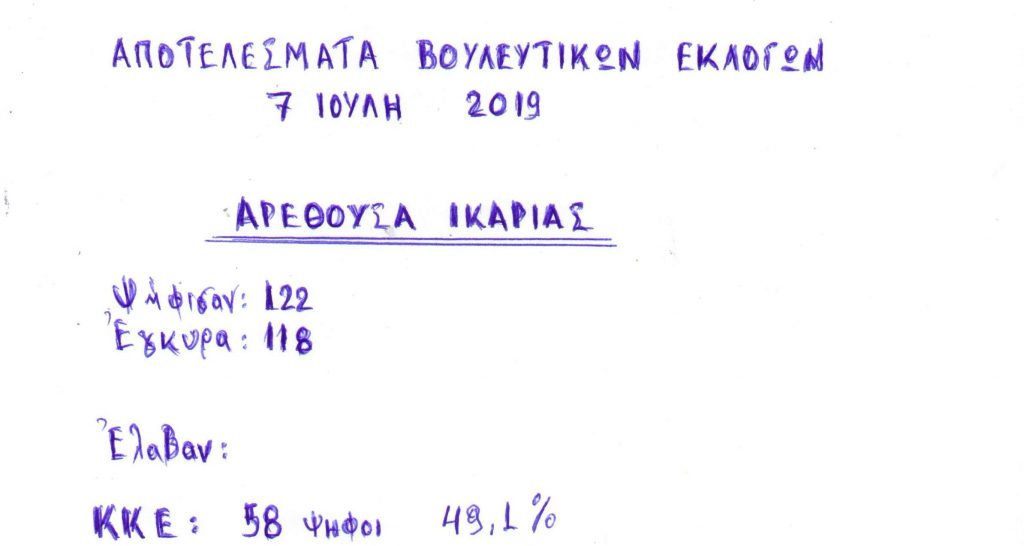 ΑΠΟΤΕΛΕΣΜΑΤΑ ΒΟΥΛΕΥΤΙΚΩΝ ΕΚΛΟΓΩΝ
7 ΙΟΥΛΗ 2019
ΑΡΕΘΟΥΣΑ ΙΚΑΡΙΑΣ
Ψήφισαν: 122
Έγκυρα: 118
Έλαβαν:
ΚΚΕ: 58 ψηφοι 49,1%